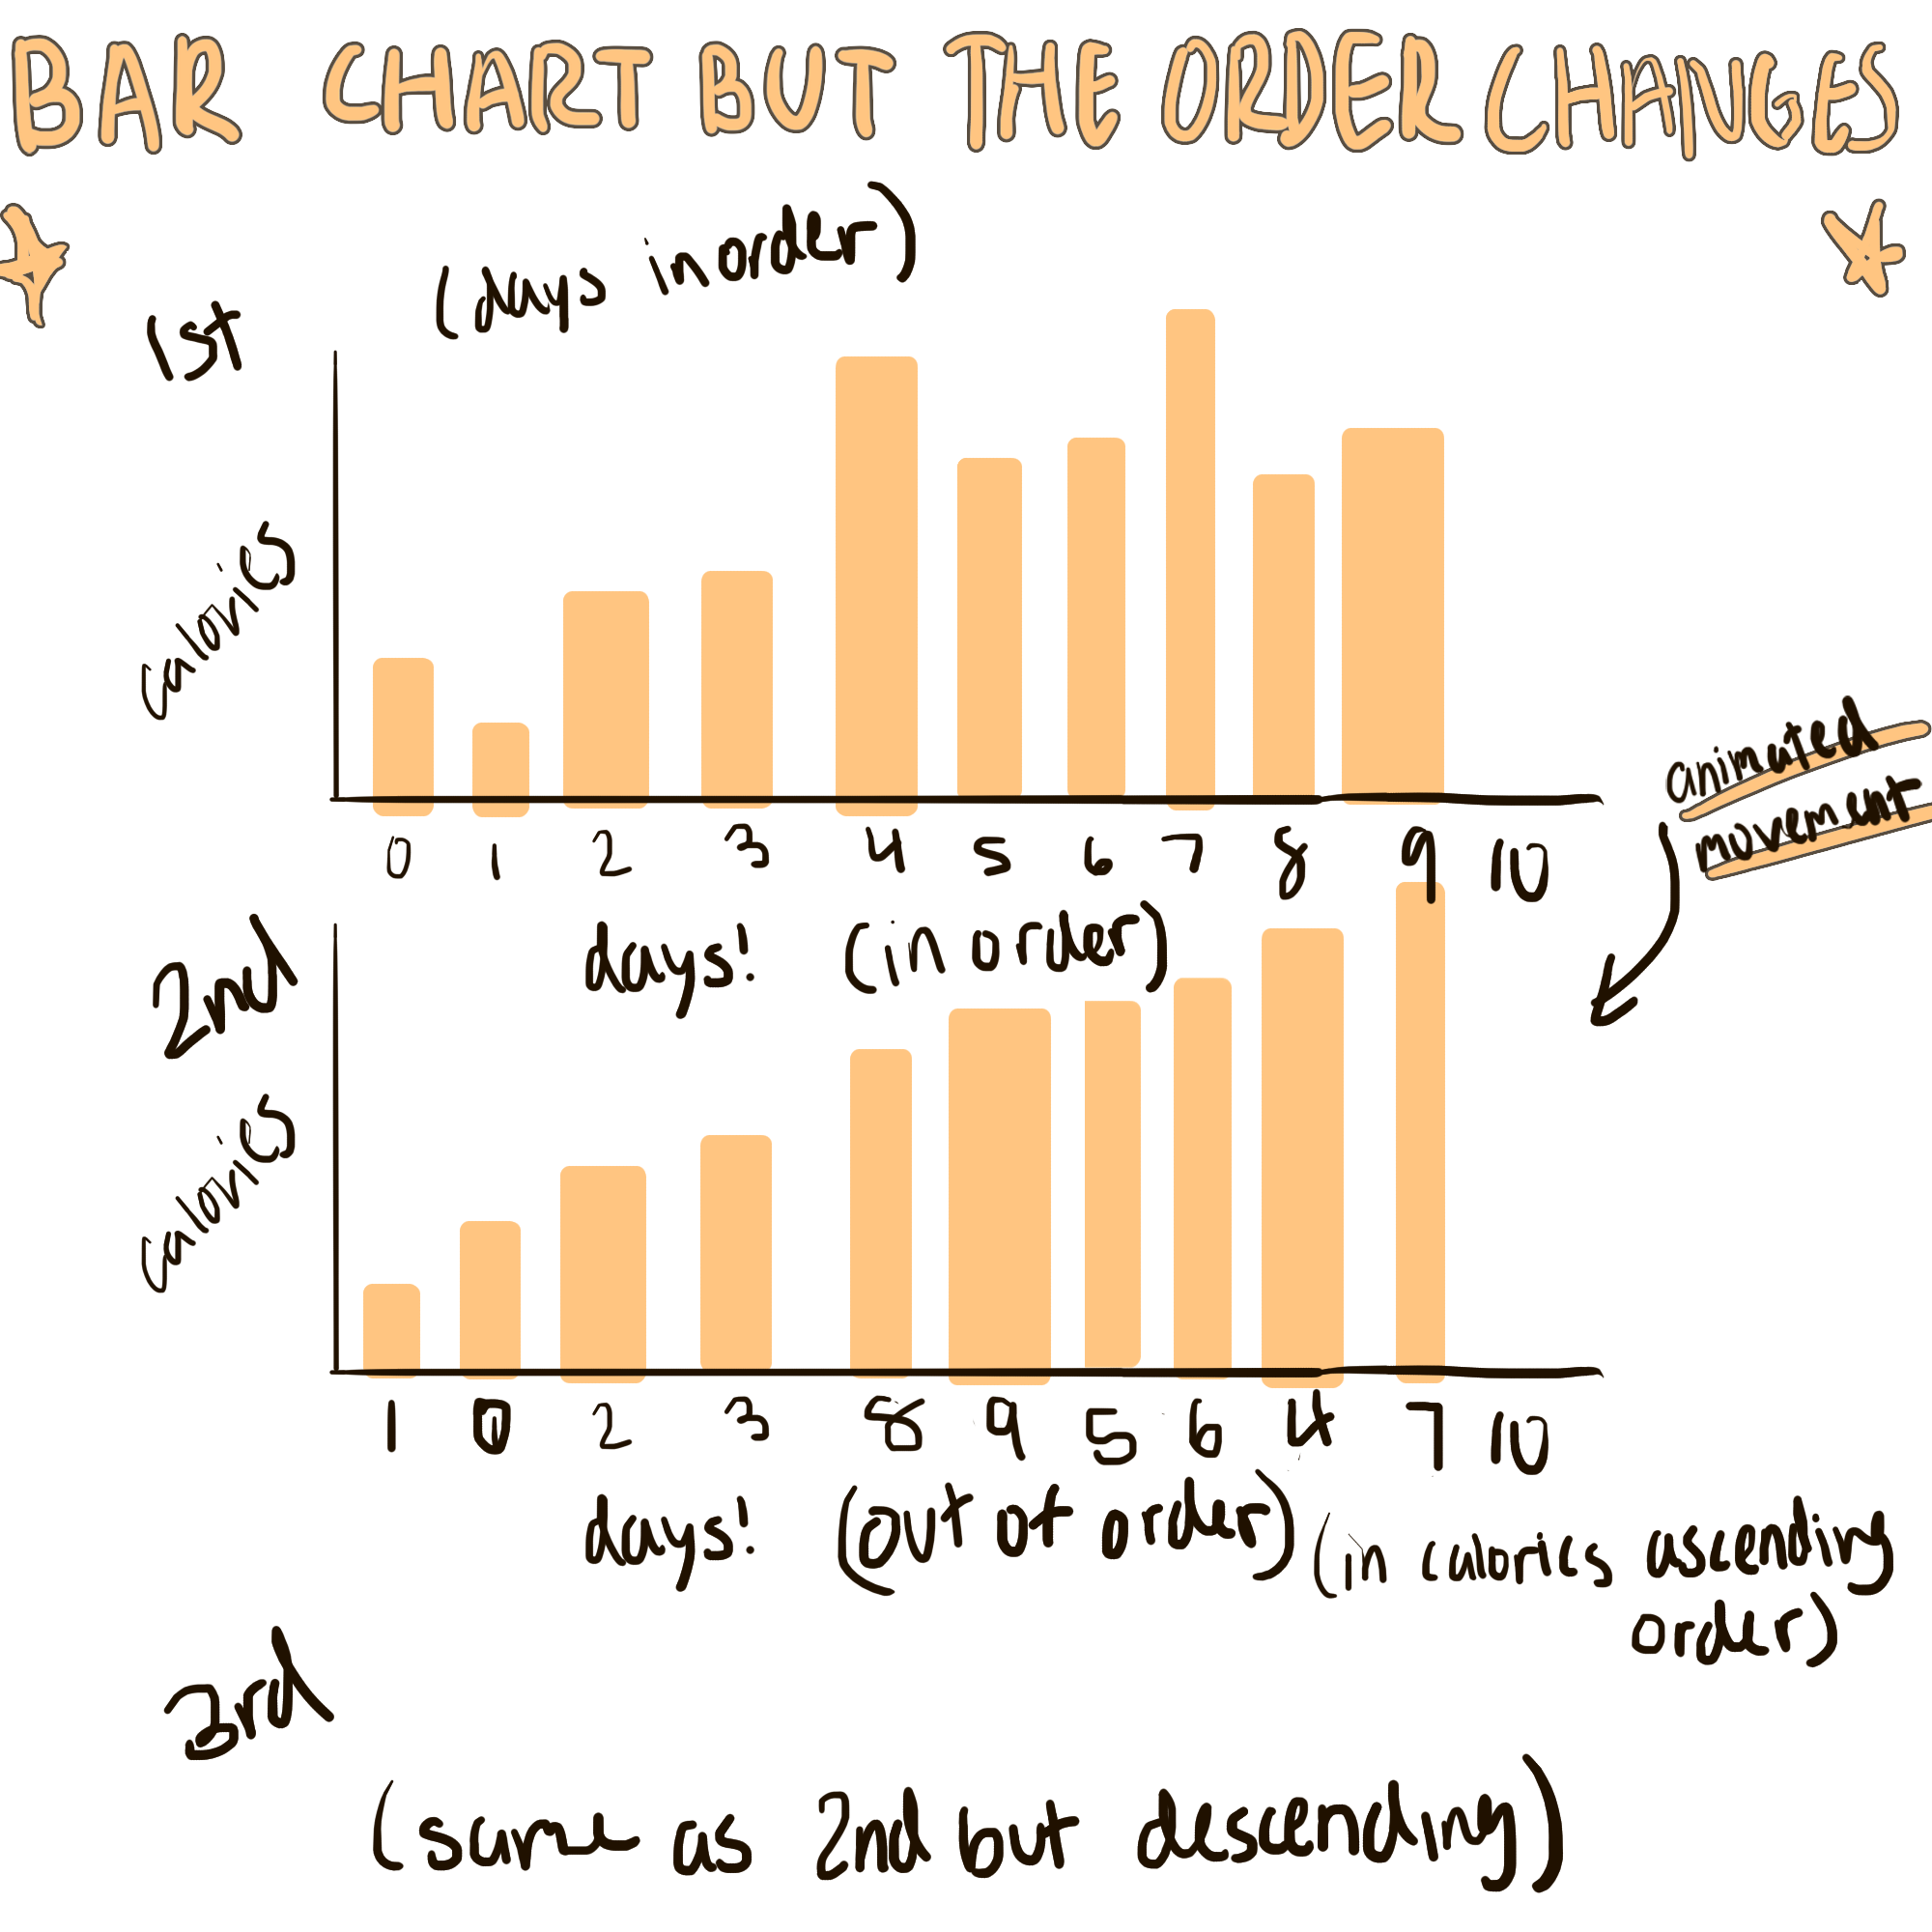 BAR CHART BUT THE ORDER CHANGES
1st (days in order)
calories
0 1 2 3 4 5 6 7 8 9 10
days! (in order)
animated
movement
2nd
calories
1 0 2 3 8 9 5 6 4 7 10
days! (out of order) (in calories ascending
order)
3rd
(same as 2nd but descending)